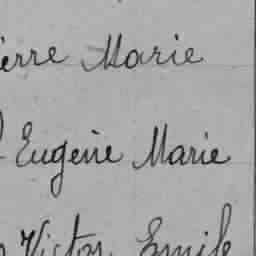 ierre Marie
Eugène Marie
Victor Emile